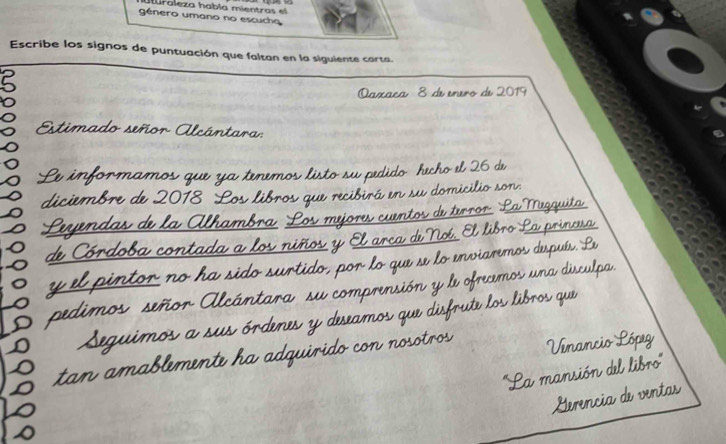 naturaleza habla mientras el
género umano no escucha
Escribe los signos de puntuación que faltan en la siguiente carta.
Oaxaca 8 de enero de 2019
Estimado señor Alcántara:
Le informamos que ya tenemos listo su pedido hecho el 26 de
diciembre de 2018 Los libros que recibirá en su domicilio son:
Leyendas de la Alhambra Los mejores cuentos de terror La Mezquita
de Córdoba contada a los niños y El arca de Noé. El libro La princesa
y el pintor no ha sido surtido, por lo que se lo enviaremos después. Le
pedimos señor Alcántara su comprensión y le ofrecemos una disculpa.
Seguimos a sus órdenes y deseamos que disfrute los libros que
tan amablemente ha adquirido con nosotros
Venancio López
"La mansión del libro"
Gerencia de ventas